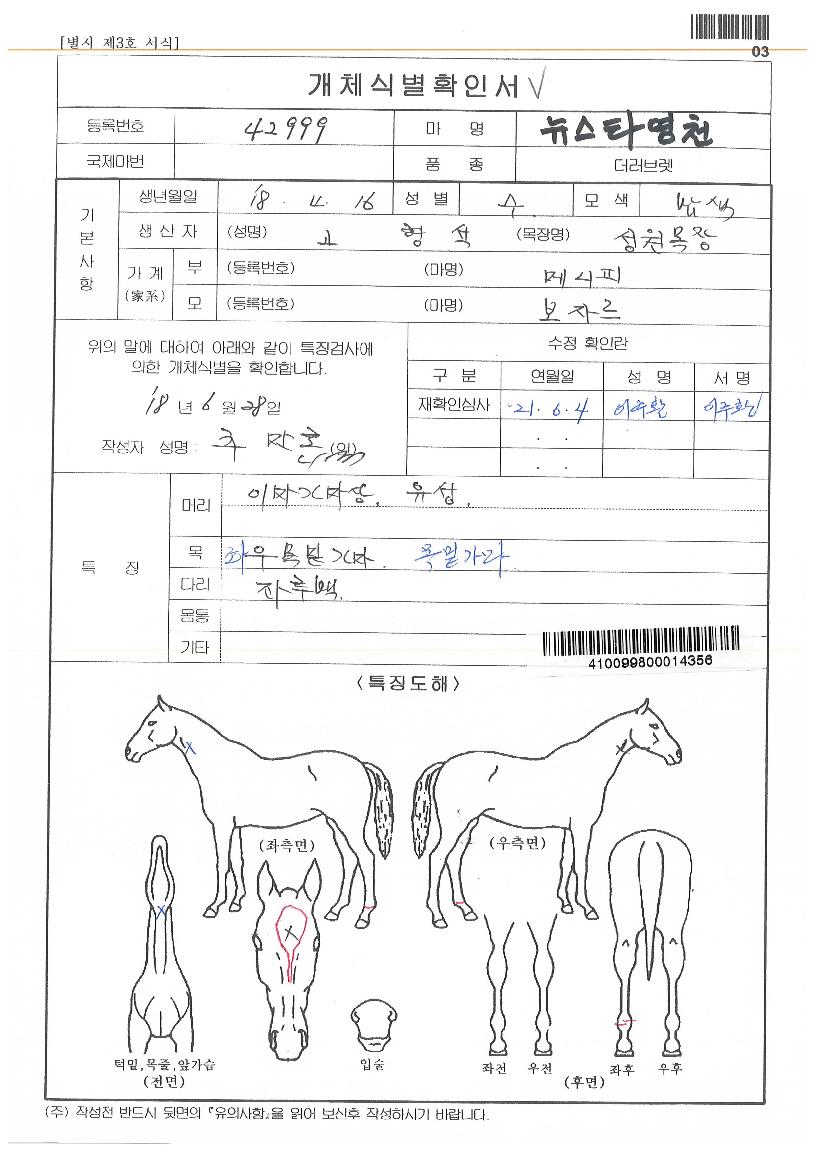 [별시 제3호 서식]
03
개체식별확인서 √
등록번호 42999 마 명 뉴스타영천
국제마번 품 종 더러브렛
기본사항
생년월일 '18 . 4. 16 성 별 수 모 색 밤색
생 산 자 (성명) 고 형 석 (목장명) 성원목장
가 계 (家系) 부 (등록번호) (마명) 메시피
모 (등록번호) (마명) 보자르
위의 말에 대하여 아래와 같이 특징검사에
의한 개체식별을 확인합니다.
'18 년 6 월 28 일
작성자 성명 : (인)
수정 확인란
구 분 연월일 성 명 서 명
재확인심사 '21. 6. 4 이주환 이주환
. .
. .
특 징
머리 유성.
목 좌우목밑가마. 목밑가마
다리 좌후백.
몸통
기타
410099800014356
<특징도해>
(좌측면)
(우측면)
턱밑,목줄,앞가슴
(전면)
입술
좌전 우전 좌후 우후
(후면)
(주) 작성전 반드시 뒷면의 『유의사항』을 읽어 보신후 작성하시기 바랍니다.